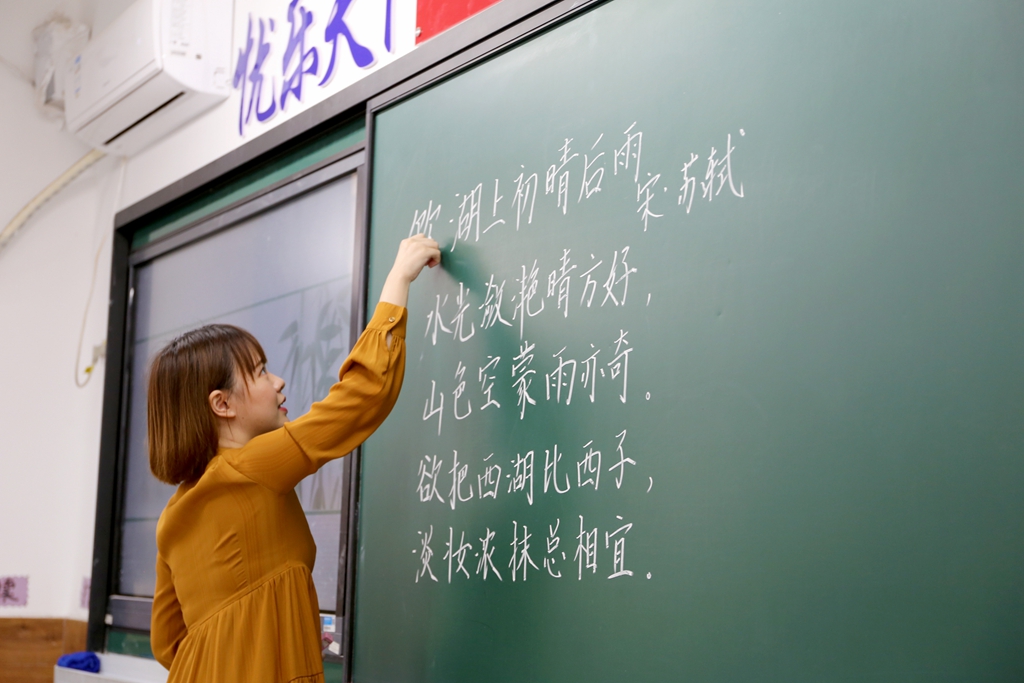 忧乐天
饮湖上初晴后雨
宋·苏轼
水光敛滟晴方好，
山色空蒙雨亦奇。
欲把西湖比西子，
淡妆浓抹总相宜。